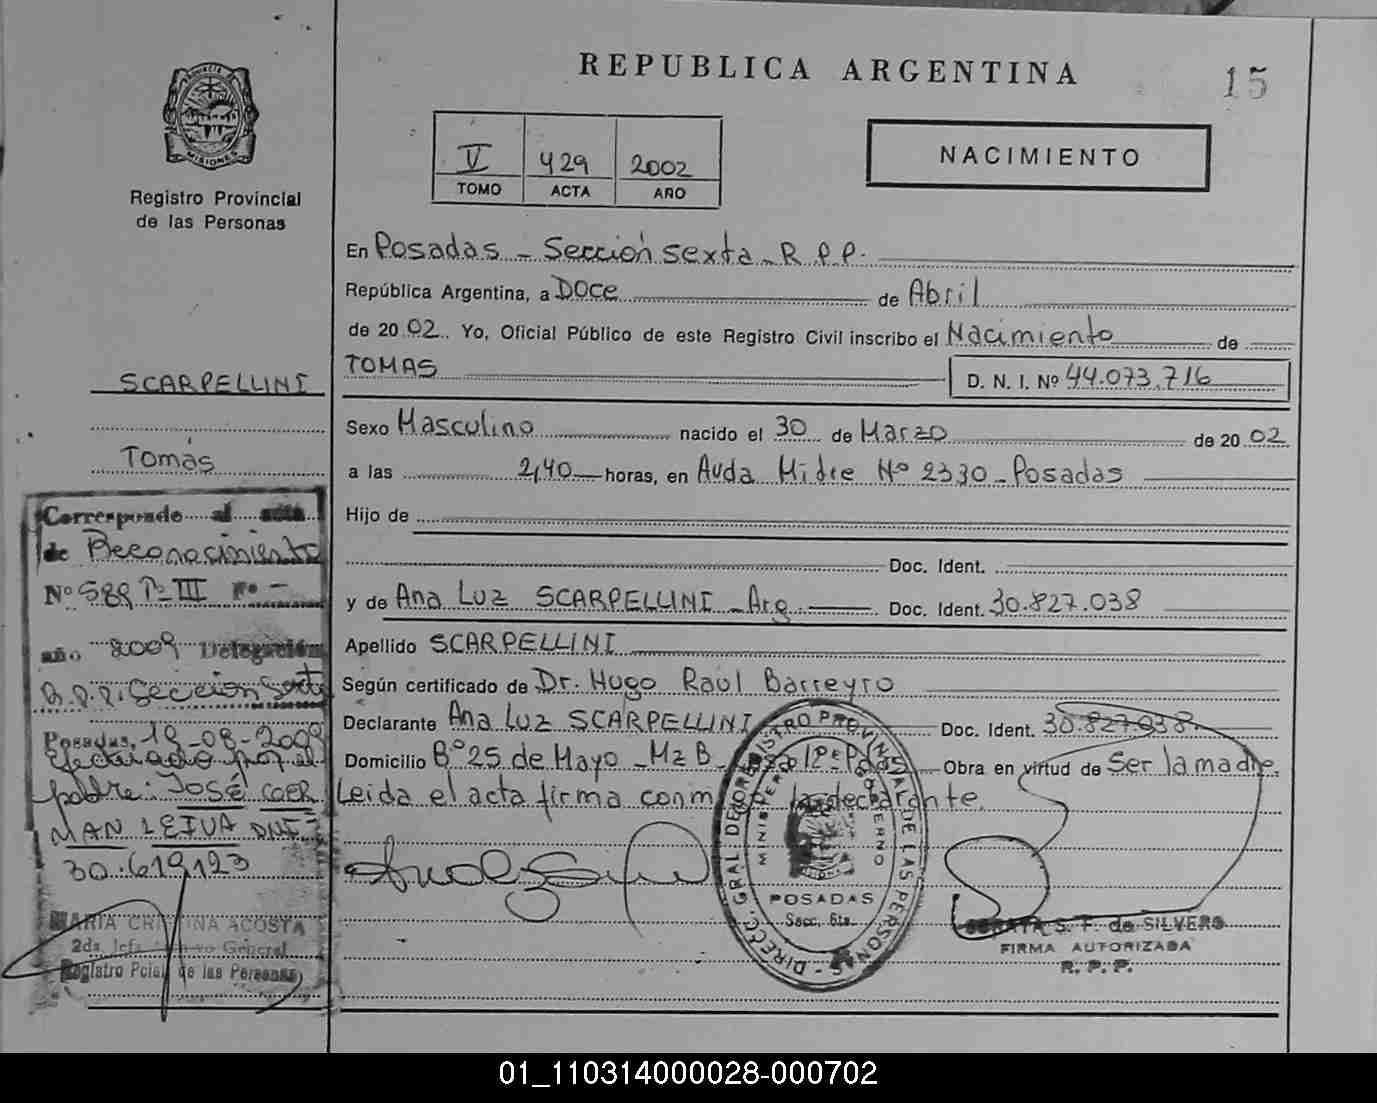 REPUBLICA ARGENTINA
15
PROVINCIA DE
MISIONES
Registro Provincial
de las Personas
V 429 2002
TOMO ACTA AÑO
NACIMIENTO
En Posadas - Sección sexta - R.P.P.
República Argentina, a Doce de Abril
de 2002. Yo, Oficial Público de este Registro Civil inscribo el Nacimiento de
TOMAS D. N. I. Nº 44.073.716
SCARPELLINI
Tomás
Sexo Masculino nacido el 30 de Marzo de 2002
a las 2,40 horas, en Avda Mitre Nº 2330 - Posadas
Hijo de
Doc. Ident.
y de Ana Luz SCARPELLINI - Arg. Doc. Ident. 30.827.038
Apellido SCARPELLINI
Según certificado de Dr. Hugo Raúl Barreyro
Declarante Ana Luz SCARPELLINI Doc. Ident. 30.827.038.
Domicilio Bº 25 de Mayo - Mz B - Obra en virtud de Ser la madre.
Leida el acta firma conm la declarante.
Corresponde al acta
de Reconocimiento
Nº 589 Tº III Fº -
año 2009 Delegación
R.P.P. Sección Sexta
Posadas, 19-08-2009
Efectuado por el
padre: José GER
MAN LEIVA DNI
30.619.123
MARIA CRISTINA ACOSTA
2da. Jefa Archivo General
Registro Pcial. de las Personas
DIRECC. GRAL. DE REGISTRO PROVINCIAL DE LAS PERSONAS
MINISTERIO GOBIERNO
POSADAS
Secc. 6ta.
S. F. de SILVERO
FIRMA AUTORIZADA
R. P. P.
01_110314000028-000702